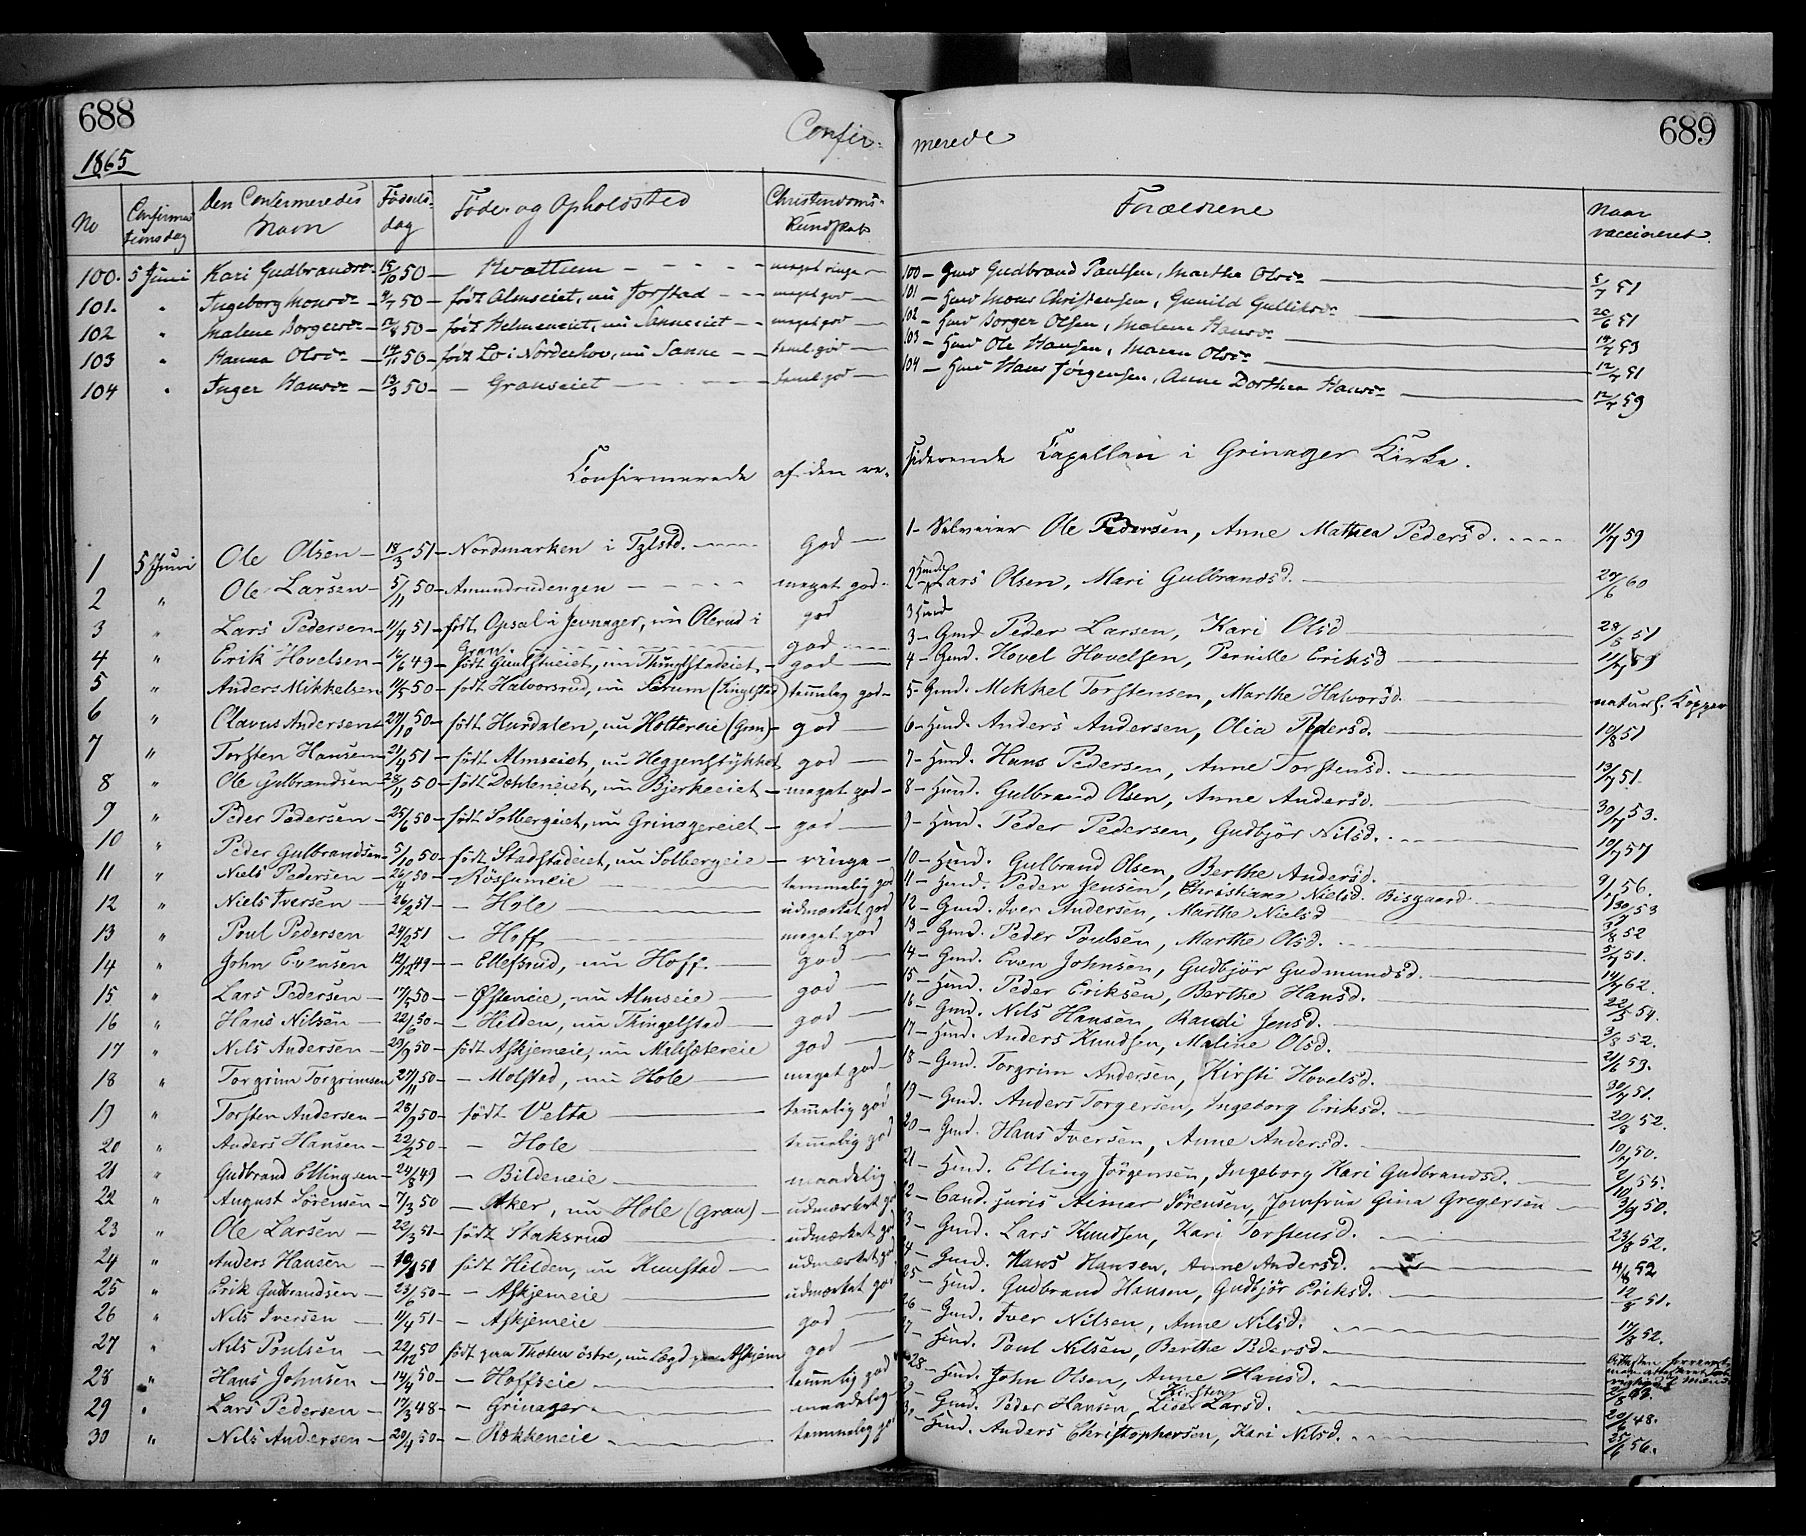 688
689
1865
Confir-
merede
No
Confirma
tionsdag
Den Confirmeredes
Navn
Fødsels-
dag
Føde- og Opholdsted
Christendoms-
Kundskab
Forældrene
Naar
vaccineret.
100. 5 Juni Kari Gudbrandsd. 15/10 50 – Kvattum – meget ringe – 100 – Gmd Gudbrand Paulsen, Marthe Olsd. 5/7 51
101. " Ingeborg Monsd. 9/7 50 – født Almseiet, nu Jorstad – meget god – 101 – Hmd Mons Christensen, Gunild Gulliksd. 20/6 51
102 " Malene Borgersd. – 12/8 50 – født Helmeneiet, nu Sanneeiet – meget god – 102 – Hmd Borger Olsen, Malene Hansd. 14/7 53
103 " Hanna Olsd. – 14/11 50 – født Lo i Norderhov, nu Sanne – temel. god – 103 – Hmd Ole Hansen, Maren Olsd. 12/7 51
104 " Inger Hansd. – 13/3 50 – – Granseiet – temel. god – 104 – Hmd Hans Jørgensen, Anne Dorthea Hansd. 12/7 59
Confirmerede af den re-
siderende Capellan i Grinager Kirke.
1 5 Juni Ole Olsen – 18/3 51 – Nordmarken i Tglstd. – God – 1 – Selveier Ole Pedersen, Anne Mathea Pedersd. 11/7 59
2 " Ole Larsen – 5/11 50 – Amundrudengen – meget god – 2 – Hmd. Lars Olsen, Mari Gulbrandsd. 29/6 60
3 " Lars Pedersen – 11/4 51 – født Opsal i Jevnager, nu Olerud i god 3 Hmd
Gran – god – 3 – Gmd. Peder Larsen, Kari Olsd 28/5 51
4 " Erik Hovelsen – 16/6 49 – født Guulstueiet, nu Thinglstadeiet – god – 4 – Gmd. Hovel Hovelsen, Pernille Eriksd 11/7 59
5 " Anders Mikkelsen 11/5 50 – født Halvorsrud, nu Sørum (Tinglstad) temmelig god – 5 – Gmd. Mikkel Torstensen, Marthe Halvorsd. naturl. Kopper
6 " Olavus Andersen 29/10 50 – født Hurdalen, nu Hottereie (Gran) – god – 6 – Hmd. Anders Andersen, Olia Pedersd. 10/8 51
7 " Torsten Hansen 21/4 51 – født Almseiet, nu Heggenstykket god – 7 – Hmd. Hans Pedersen, Anne Torstensd. 13/7 51.
8 " Ole Gulbrandsen – 23/11 50 – født Dæhleneiet, nu Bjerkeeiet – meget god – 8 – Hmd. Gulbrand Olsen, Anne Andersd. 30/7 53.
9 " Peder Pedersen – 25/6 50 – født Solbergeiet, nu Grinagereiet – god – 9 – Hmd. Peder Pedersen, Gudbjør Nilsd. 10/7 57
10 " Peder Gulbrandsen 5/10 50 – født Stadstadeiet, nu Solbergeie – ringe – 10 – Hmd. Gulbrand Olsen, Berthe Andersd. 9/1 56.
11 " Niels Pedersen – 26/4 50 – Røssumeie – temmelig god 11 – Hmd. Peder Jensen, Christiane Nielsd. Bisgaard
12 " Niels Iversen – 26/2 51 – – Hole – udmærket god 12 – Gmd. Iver Andersen, Marthe Nielsd 53
13 " Poul Pedersen 24/2 51 – Hoff – meget god 13 – Gmd. Peder Poulsen, Marthe Olsd. 8 52
14 " John Evensen 12/12 49 – – Ellefsrud, nu Hoff. – god – 14 – Gmd. Even Johnsen, Gudbjør Gudmundsd. 5/7 51.
15 " Lars Pedersen – 17/5 50 – – Østeneie, nu Almseie – god – 15 – Hmd. Peder Eriksen, Berthe Hansd. 14/7 62.
16 " Hans Nilsen – 22/6 50 – – Hilden, nu Thingelstad – god – 16 – Gmd. Nils Hansen, Randi Jensd. 22/5 54.
17 " Nils Andersen – 29/9 50 – født Askjemeie, nu Mælisætereie god – 17 – Hmd. Anders Knudsen, Maline Olsd. 3/8 52.
18 " Torgrim Torgrimsen 27/11 50 – – Molstad, nu Hole – meget god – 18 – Gmd. Torgrim Andersen, Kirsti Hovelsd. 21/6 53.
19 " Torsten Andersen – 28/9 50 – født Velta – temmelig god 19 – Gmd. Anders Torgersen, Ingeborg Eriksd. 30/7 51.
20 " Anders Hansen – 22/2 50 – – Hole – temmelig god 20 – Gmd. Hans Iversen, Anne Andersd. 20/8 52.
21 " Gudbrand Ellingsen – 24/8 49 – Bildeneie – maadelig 21 – Hmd. Elling Jørgensen, Ingeborg Kari Gudbrandsd. 10/7 50.
22 " August Sørensen – 7/3 50 – Aker, nu Hole (Gran) – udmærket g 22 – Cand. juris Aimar Sørensen, Jomfrue Gina Gregersen 3/9 50.
23 " Ole Larsen – 22/3 51 – født Staksrud – udmærket g 3 – Gmd. Lars Knudsen, Kari Torstensd. 23/8 52.
24 " Anders Hansen – 10/1 51 født Hilden, nu Ruustad – udmærket god 4 – Gmd. Hans Hansen, Anne Andersd. 4/8 52
25 " Erik Gudbrandsen – 23/6 50 – – Askjemeie – udmærket god 25 – Hmd. Gudbrand Hansen, Gudbjør Eriksd. 12/8 51.
26 " Nils Iversen – 11/4 51 – – Askjemeie – god – 26 – Gmd. Iver Nilsen, Anne Nilsd. 17/8 52.
27 " Nils Poulsen – 22/12 50 født paa Thoten østre, nu Lægd paa Askjem god – 7 – Hmd. Poul Nilsen, Berthe Pedersd.
28 " Hans Johnsen – 14/4 50 – – Hoffseie – temmelig god 28 – Hmd. John Olsen, Anne Hansd.
29 " Lars Pedersen – 17/3 48 – – Grinager – maadelig 9 – Gmd. Peder Hansen, Kirsten Lise Larsd. 20/8 48.
30 " Nils Andersen – 20/4 50 – – Rækkeneie – temmelig g 30 – Hmd. Anders Christophersen, Kari Nilsd. 25/6 56.